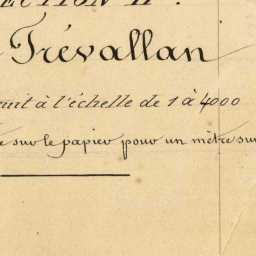 ECTION H.
Trévallan
uit à l'échelle de 1 à 4000
e sur le papier pour un mètre sur